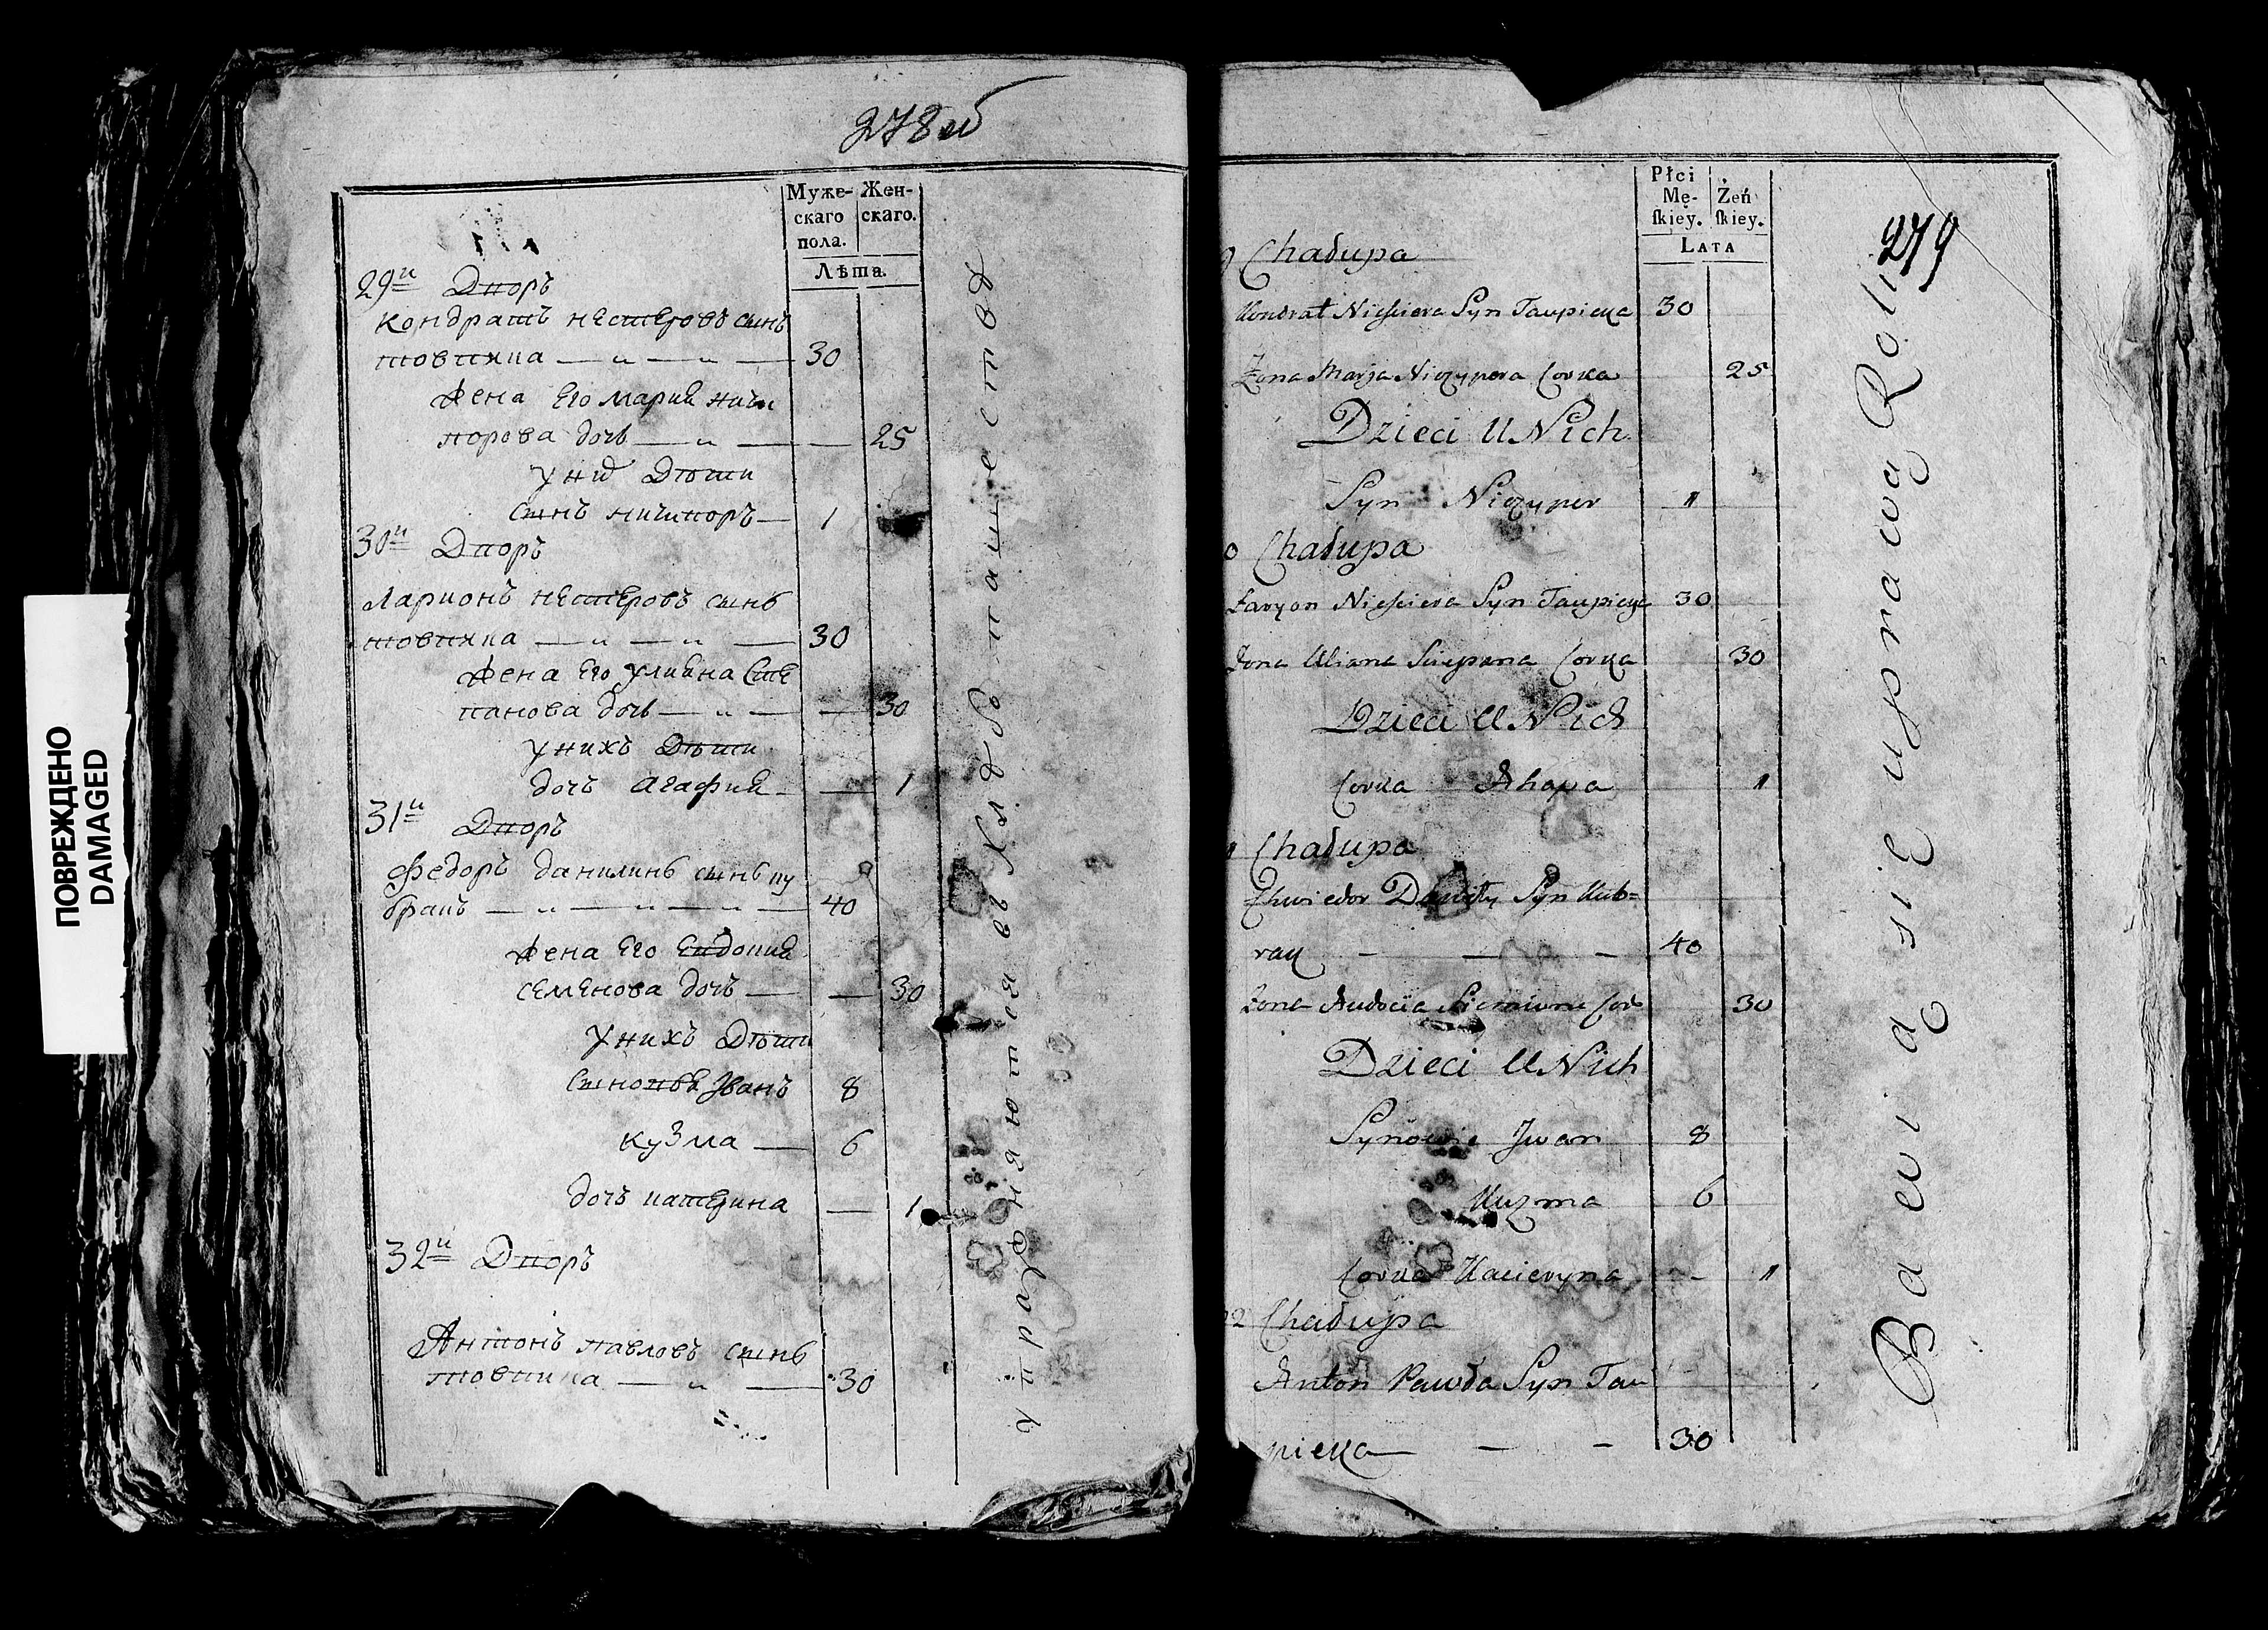 278 об
Муже-
скаго
пола.
Жен-
скаго.
Лѣта.
29й Дворъ
Кондратъ Нестеровъ сынъ
товпика — " — " — 30
Жена его Мария ничи
порова дочь — " — — 25
У них Дѣти
сынъ ничипоръ — 1
30й Дворъ
Ларионъ Нестеровъ сынъ
товпика — " — " — 30
Жена его Улияна Сте
панова дочь — " — — 30
У нихъ Дѣти
дочь Агафия — — 1
31й Дворъ
Федоръ Данилинъ сынъ ку
бракъ — " — " — " — 40
Жена его Евдокия
Семенова дочь — — 30
У нихъ Дѣти
сыновья Іванъ 8
Кузма — 6
дочь катерина — 1
32й Дворъ
Антонъ Павловъ сынъ
товпика — " — 30
упражняются въ хлѣбопашествѣ
ПОВРЕЖДЕНО
DAMAGED
279
Płci
Mę-
ſkieÿ.
Żeń
ſkiey.
LATA
Chałupa
Kondrat Nieściera Syn Taupieka 30
Żona Marja Niczypora Corka 25
Dzieci U Nich
Syn Niczypor "
0 Chałupa
Łaryon Nieściera Syn Taupieka 30
Żona Uliana Sciepana Corka 30
Dzieci U Nich
Corka Ahapa "
Chałupa
Chwiedor Daniły Syn Kub=
rak — — — 40
Żona Audocia Siemiona Cor 30
Dzieci U Nich
Synowie Jwan 8
Kuzma 6
Corka Kacieryna - "
32 Chałupa
Anton Pawła Syn Tau
pieka — — - 30
Bawią się uprawą Roli